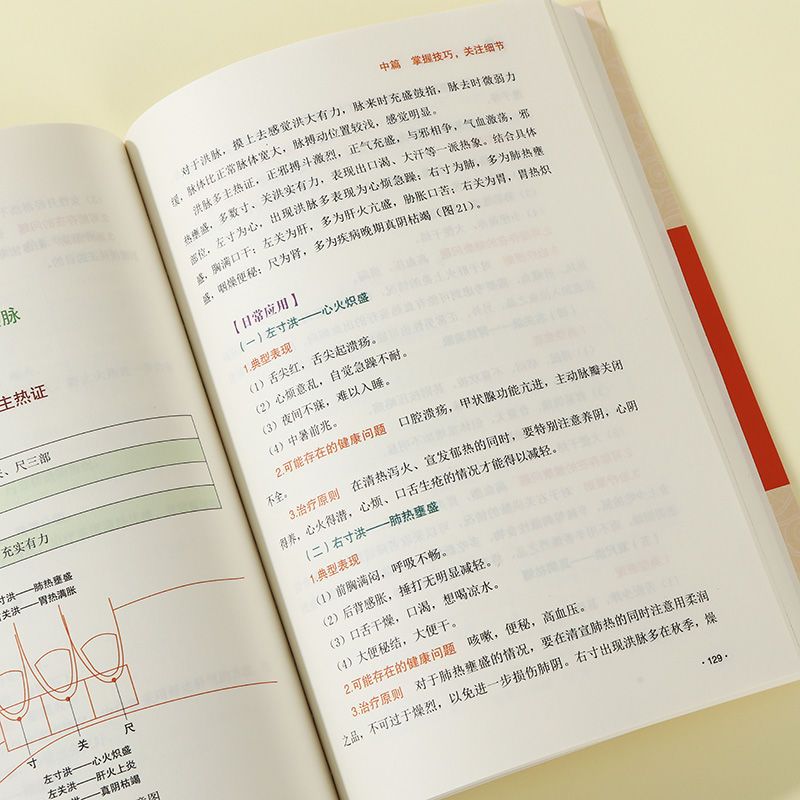 脉
主热证
、尺三部
充实有力
寸洪——肺热壅盛
关洪——胃热满胀
寸 关 尺
左寸洪——心火炽盛
左关洪——肝火上炎
左尺洪——真阴枯竭
意图
中篇 掌握技巧，关注细节
对于洪脉，摸上去感觉洪大有力，脉来时充盛鼓指，脉去时微弱力
缓，脉体比正常脉体宽大，脉搏动位置较浅，感觉明显。
洪脉多主热证，正邪搏斗激烈，正气充盛，与邪相争，气血激荡，邪
热壅盛，多数寸、关洪实有力，表现出口渴、大汗等一派热象。结合具体
部位，左寸为心，出现洪脉多表现为心烦急躁；右寸为肺，多为肺热壅
盛，胸满口干；左关为肝，多为肝火亢盛，胁胀口苦；右关为胃，胃热炽
盛，咽燥便秘；尺为肾，多为疾病晚期真阴枯竭（图21）。
【日常应用】
（一）左寸洪——心火炽盛
1.典型表现
（1）舌尖红，舌尖起溃疡。
（2）心烦意乱，自觉急躁不耐。
（3）夜间不寐，难以入睡。
（4）中暑前兆。
2.可能存在的健康问题 口腔溃疡，甲状腺功能亢进，主动脉瓣关闭
不全。
3.治疗原则 在清热泻火、宣发郁热的同时，要特别注意养阴，心阴
得养，心火得潜，心烦、口舌生疮的情况才能得以减轻。
（二）右寸洪——肺热壅盛
1.典型表现
（1）前胸满闷，呼吸不畅。
（2）后背感胀，捶打无明显减轻。
（3）口舌干燥，口渴，想喝凉水。
（4）大便秘结，大便干。
2.可能存在的健康问题 咳嗽，便秘，高血压。
3.治疗原则 对于肺热壅盛的情况，要在清宣肺热的同时注意用柔润
之品，不可过于燥烈，以免进一步损伤肺阴。右寸出现洪脉多在秋季，燥
·129·